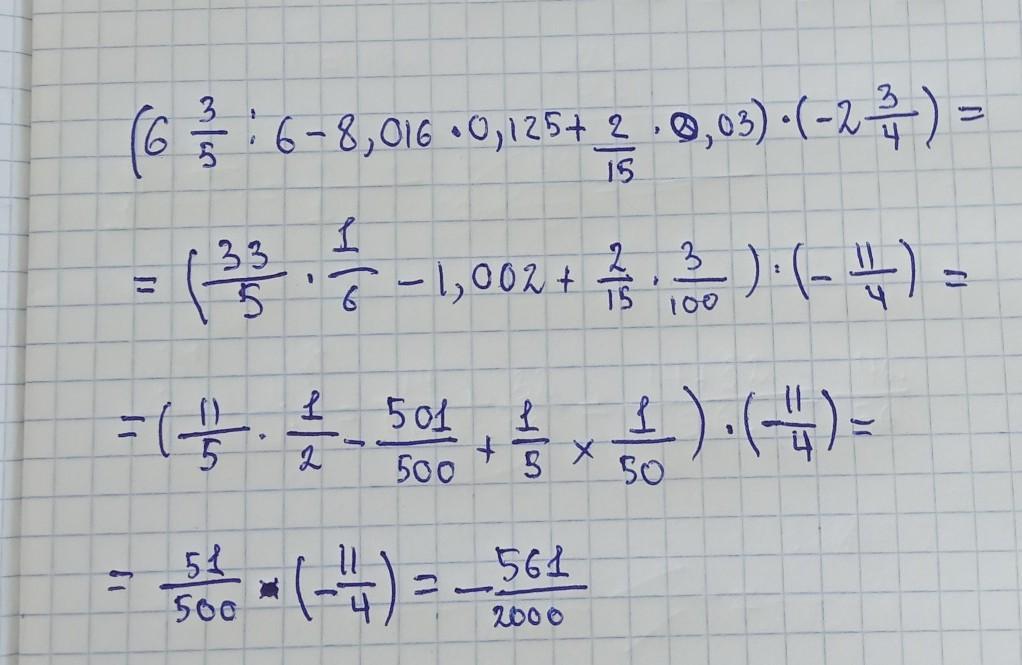 (6 3/5 : 6 - 8,016 · 0,125 + 2/15 · 0,03) · (-2 3/4) =
= (33/5 · 1/6 - 1,002 + 2/15 · 3/100) · (- 11/4) =
= (11/5 · 1/2 - 501/500 + 1/5 × 1/50) · (- 11/4) =
= 51/500 · (- 11/4) = - 561/2000